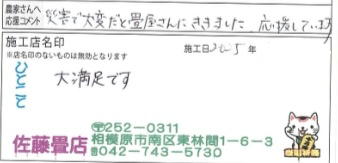 農家さんへ
応援コメント
災害で大変だと畳屋さんにききました 応援しています
施工店名印
※店名印のないものは無効となります
施工日2025年
ひとこと
大満足です
〒252-0311
佐藤畳店
相模原市南区東林間1-6-3
☎042-743-5730